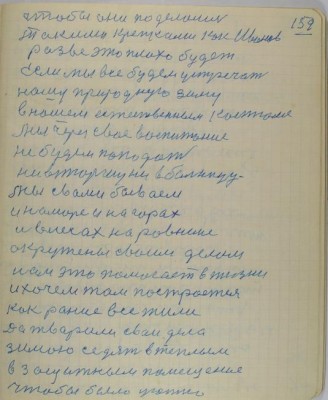 159
чтобы они поделались
такими крепкими как Иванов
разве это плохо будет
Если мы все будем устречат
нашу природную зиму
в нашем естественном костюме
мы чем свое воспитание
не будем попадат
ни в тюрму ни в больницу
мы с вами бываем
и на море и на горах
и в лесах на ровние
окружены своим делом
нам это помогает в жизни
и хочем там построется
как ранее все жили
да тварили сваи дела
зимою седят в теплым
в защитным помещение
чтобы было